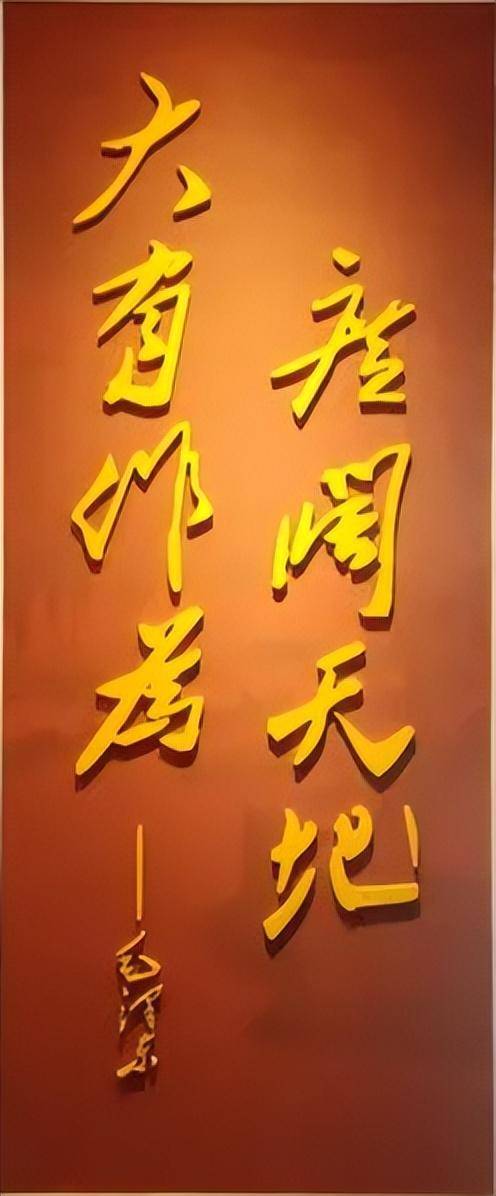 广阔天地
大有作为
——毛泽东